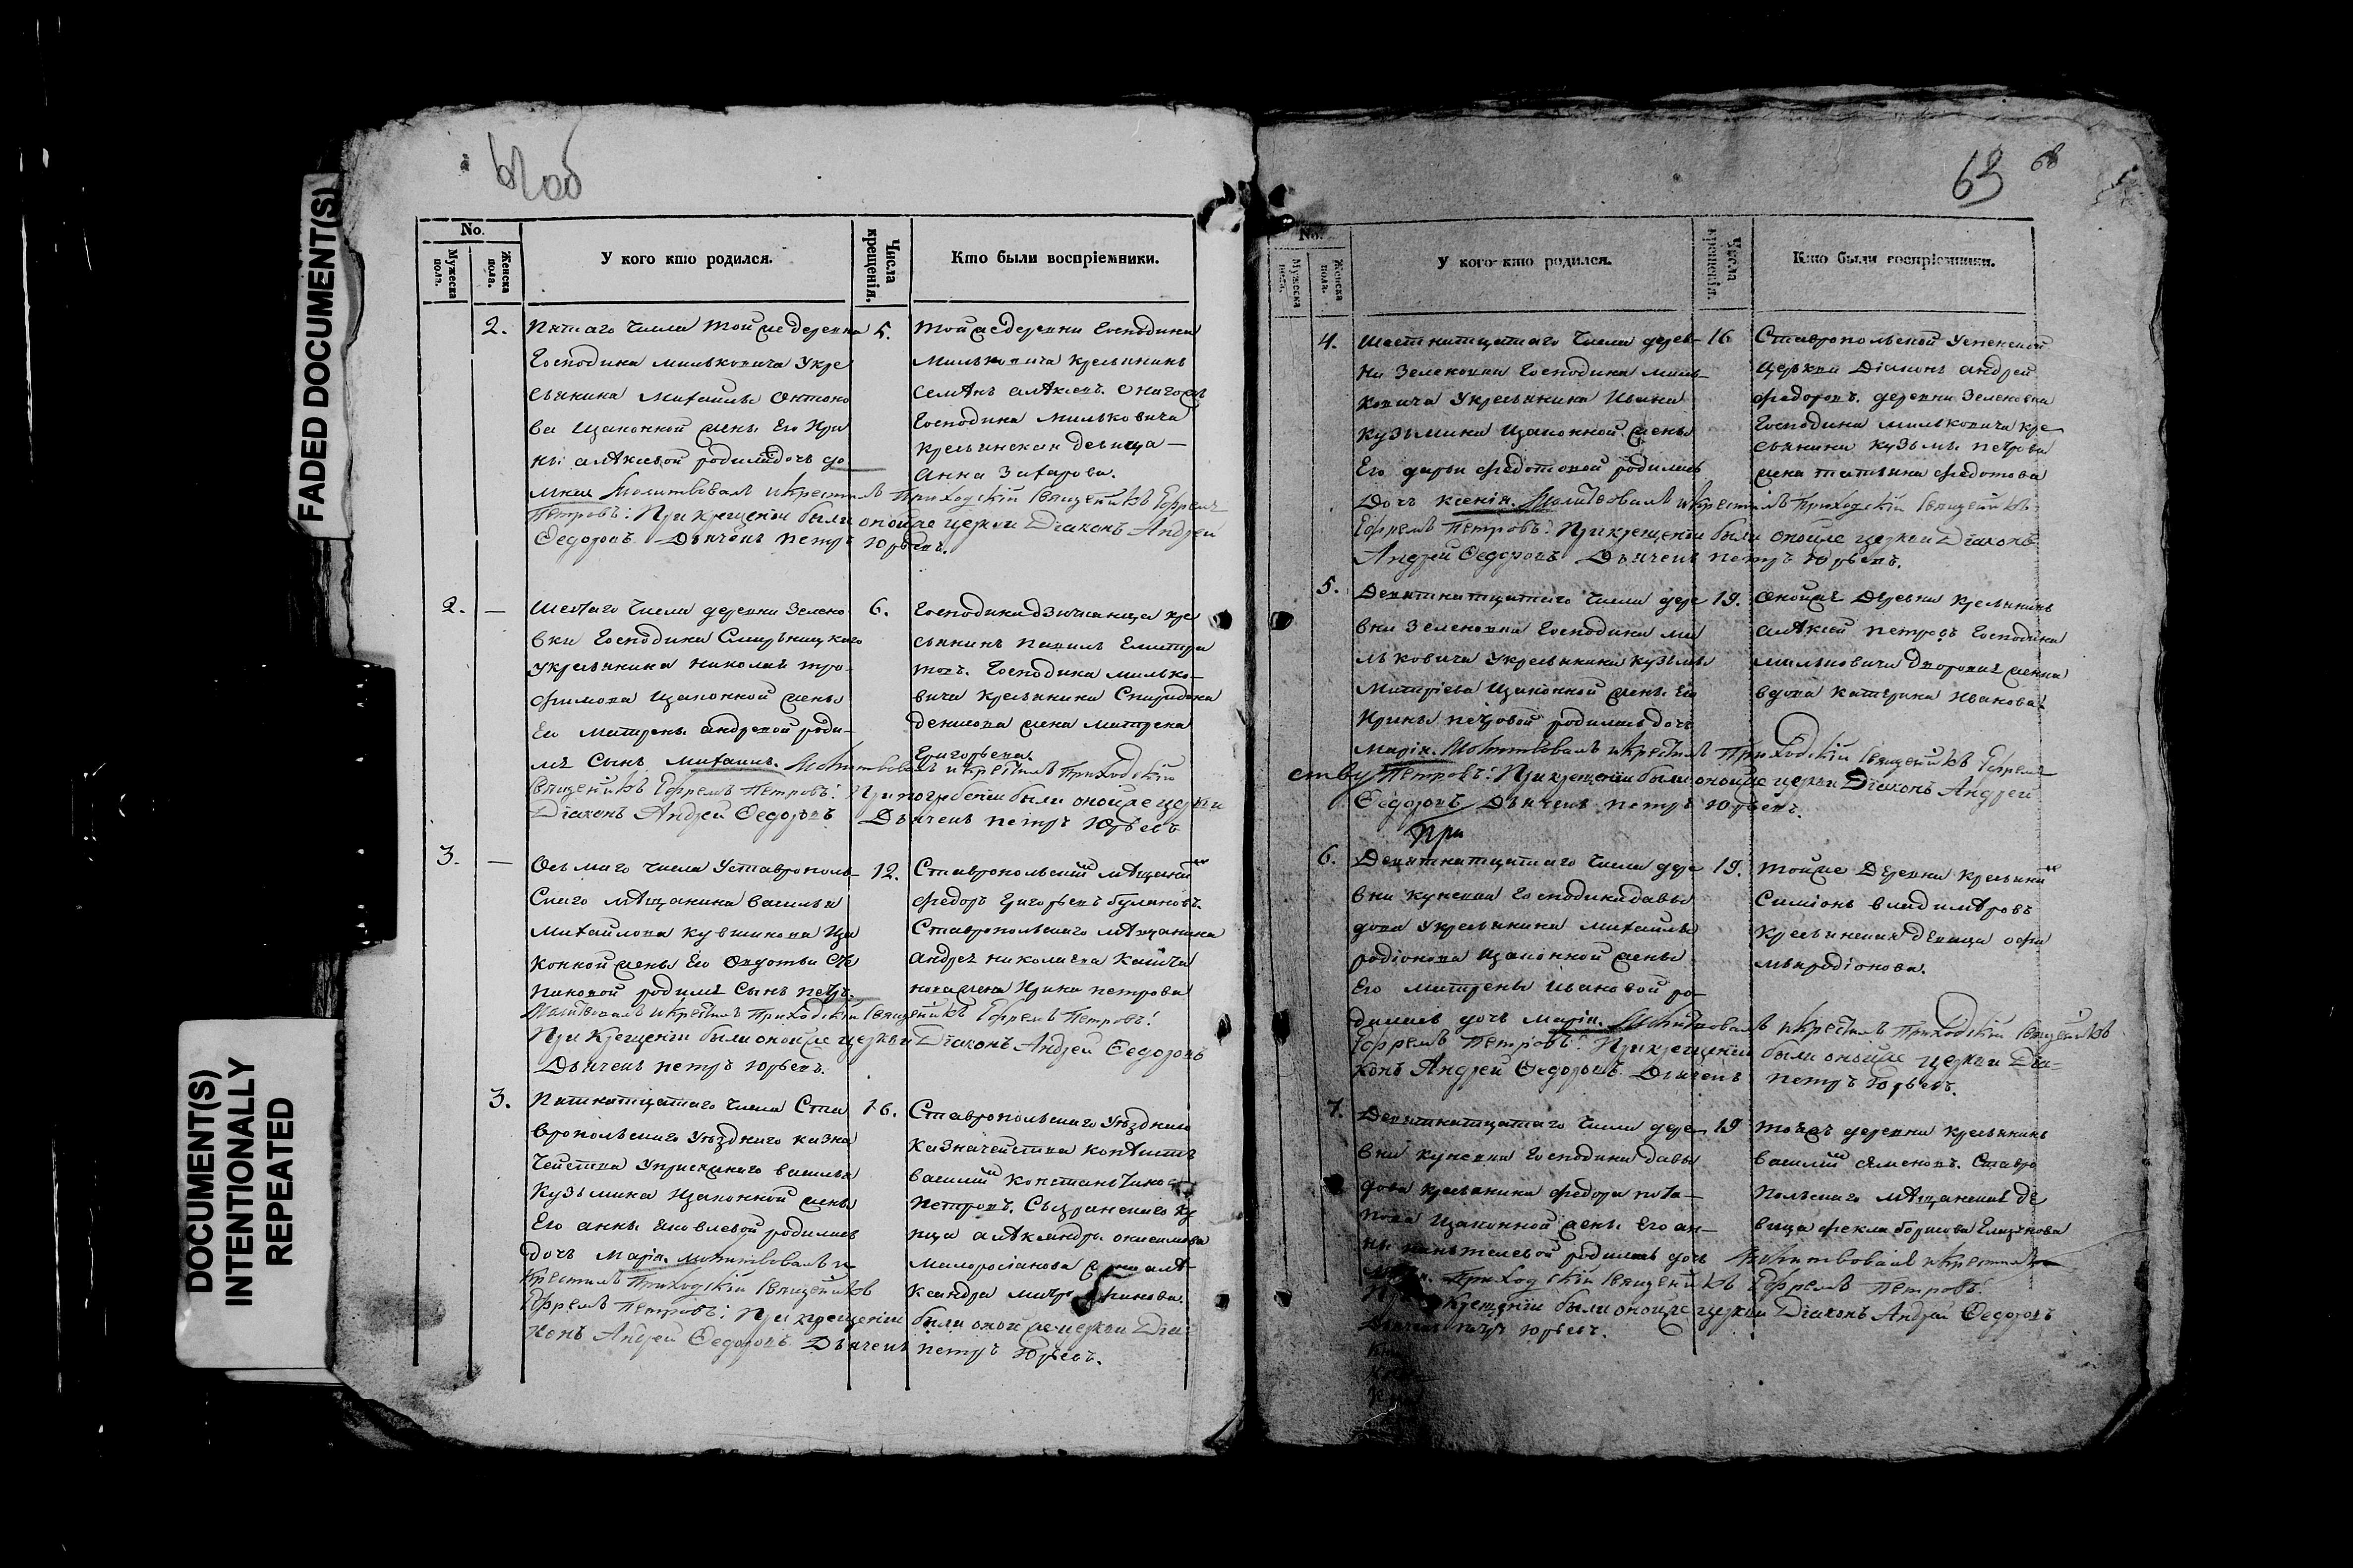 FADED DOCUMENT(S)
DOCUMENT(S)
INTENTIONALLY
REPEATED
62 об
No.
Мужеска пола.
Женска пола.
У кого кто родился.
Числа крещенія.
Кто были воспріемники.
2.
Пятаго числа той же деревни
Господина Мильковича у кре
стьянина Михаилы Онтоно
ва и законной жены его Ири
ны алѣксѣвой родилась дочь До
мна Молитвовалъ и крестилъ Приходскій Священникъ Ефремъ
Петровъ: При крещеніи были оной же церкви Діаконъ Андрей
Ѳедоровъ Дьячекъ петръ Юрьевъ.
5.
той же деревни Господина
Мильковича крестьянинъ
Господина Мильковича
крестьянская девица
Анна Захарова.
2. —
Шестаго числа деревни Зелено
вки Господина
у крестьянина николая тро
фимова и законной жены
Его матрены андревой роди
лся Сынъ Михаилъ. Молитвовалъ и крестилъ Приходскій
Священникъ Ефремъ Петровъ: При погребеніи были оной же церкви
Діаконъ Андрей Ѳедоровъ Дьячекъ петръ Юрьевъ
6.
крестьянинъ павелъ
Господина Милько
вича крестьянина Спиридона
денисова жена матрена
Григорьева.
3. —
Осьмаго числа Уставрополь
Скаго мѣщанина василья
Михайлова кувшинова и за
конной жены его
родился Сынъ петръ.
Молитвовалъ и крестилъ Приходскій Священникъ Ефремъ Петровъ!
При Крещеніи были оной же церкви Діаконъ Андрей Ѳедоровъ
Дьячекъ петръ Юрьевъ.
12.
Ставропольский мѣщанинъ
федоръ григорьевъ
Ставропольскаго мѣщанина
андрея николаева
жена Ирина петрова
3.
Пятнатцатаго числа Ста
вропольскаго Уѣзднаго казна
чейства василья
Кузьмина и законной жены
Его анны яковлевой родилась
дочь Марія. молитвовалъ и
Крестилъ Приходскій Священникъ
Ефремъ Петровъ: При крещеніи были оной же церкви Діа
конъ Андрей Ѳедоровъ Дьячекъ петръ Юрьевъ.
16.
Ставропольскаго Уѣзднаго
Казначейства копѣистъ
василий
Петровъ. Сызранскаго ку
пца алѣксандра
63
68
No.
Мужеска пола.
Женска пола.
У кого кто родился.
Числа крещенія.
Кто были воспріемники.
4.
Шестнатцатаго числа дерев
ни Зеленовки Господина миль
ковича у крестьянина Ивана
кузьмина и законной жены
Его дарьи федотовой родилась
Дочь ксенія. Молитвовалъ и крестилъ Приходскій Священникъ
Ефремъ Петровъ: При крещеніи были оной же церкви Діаконъ
Андрей Ѳедоровъ Дьячекъ петръ Юрьевъ.
16
Ставропольской Успенской
Церкви Діаконъ андрей
федоровъ. деревни Зеленовки
Господина мильковича кре
стьянина кузьмы петрова
жена татьяна федотова
5.
Девятнатцатаго числа дере
вни Зеленовки Господина ми
льковича у крестьянина кузьмы
и законной жены его
Ирины петровой родилась дочь
Марія. Молитвовалъ и крестилъ Приходскій Священникъ Ефремъ
Петровъ: При крещеніи были оной же церкви Діаконъ Андрей
Ѳедоровъ Дьячекъ петръ Юрьевъ.
19.
оной же Деревни крестьянинъ
алѣксей петровъ Господина
мильковича дворовая женка
вдова катерина Иванова.
6.
Девятнатцатаго числа дере
вни кунеевки Господина давы
дова у крестьянина михаилы
родіонова и законной жены
Его матрены ивановой ро
дилась дочь Марія. Молитвовалъ и крестилъ Приходскій Священникъ
Ефремъ Петровъ: При крещеніи были оной же церкви Діа
конъ Андрей Ѳедоровъ. Дьячекъ петръ Юрьевъ.
19.
той же Деревни крестьянинъ
Симіонъ владимѣровъ
крестьянская девица
родіонова.
7.
Девятнатцатаго числа дере
вни кунеевки Господина давы
дова крестьянина федора пота
пова и законной жены Его ан
ны родилась дочь Молитвовалъ и крестилъ
Приходскій Священникъ Ефремъ Петровъ:
Крещеніи были оной же церкви Діаконъ Андрей Ѳедоровъ
Дьячекъ петръ Юрьевъ.
19
той же деревни крестьянинъ
василий семеновъ. Ставро
польскаго мѣщанская де
вица фекла борисова